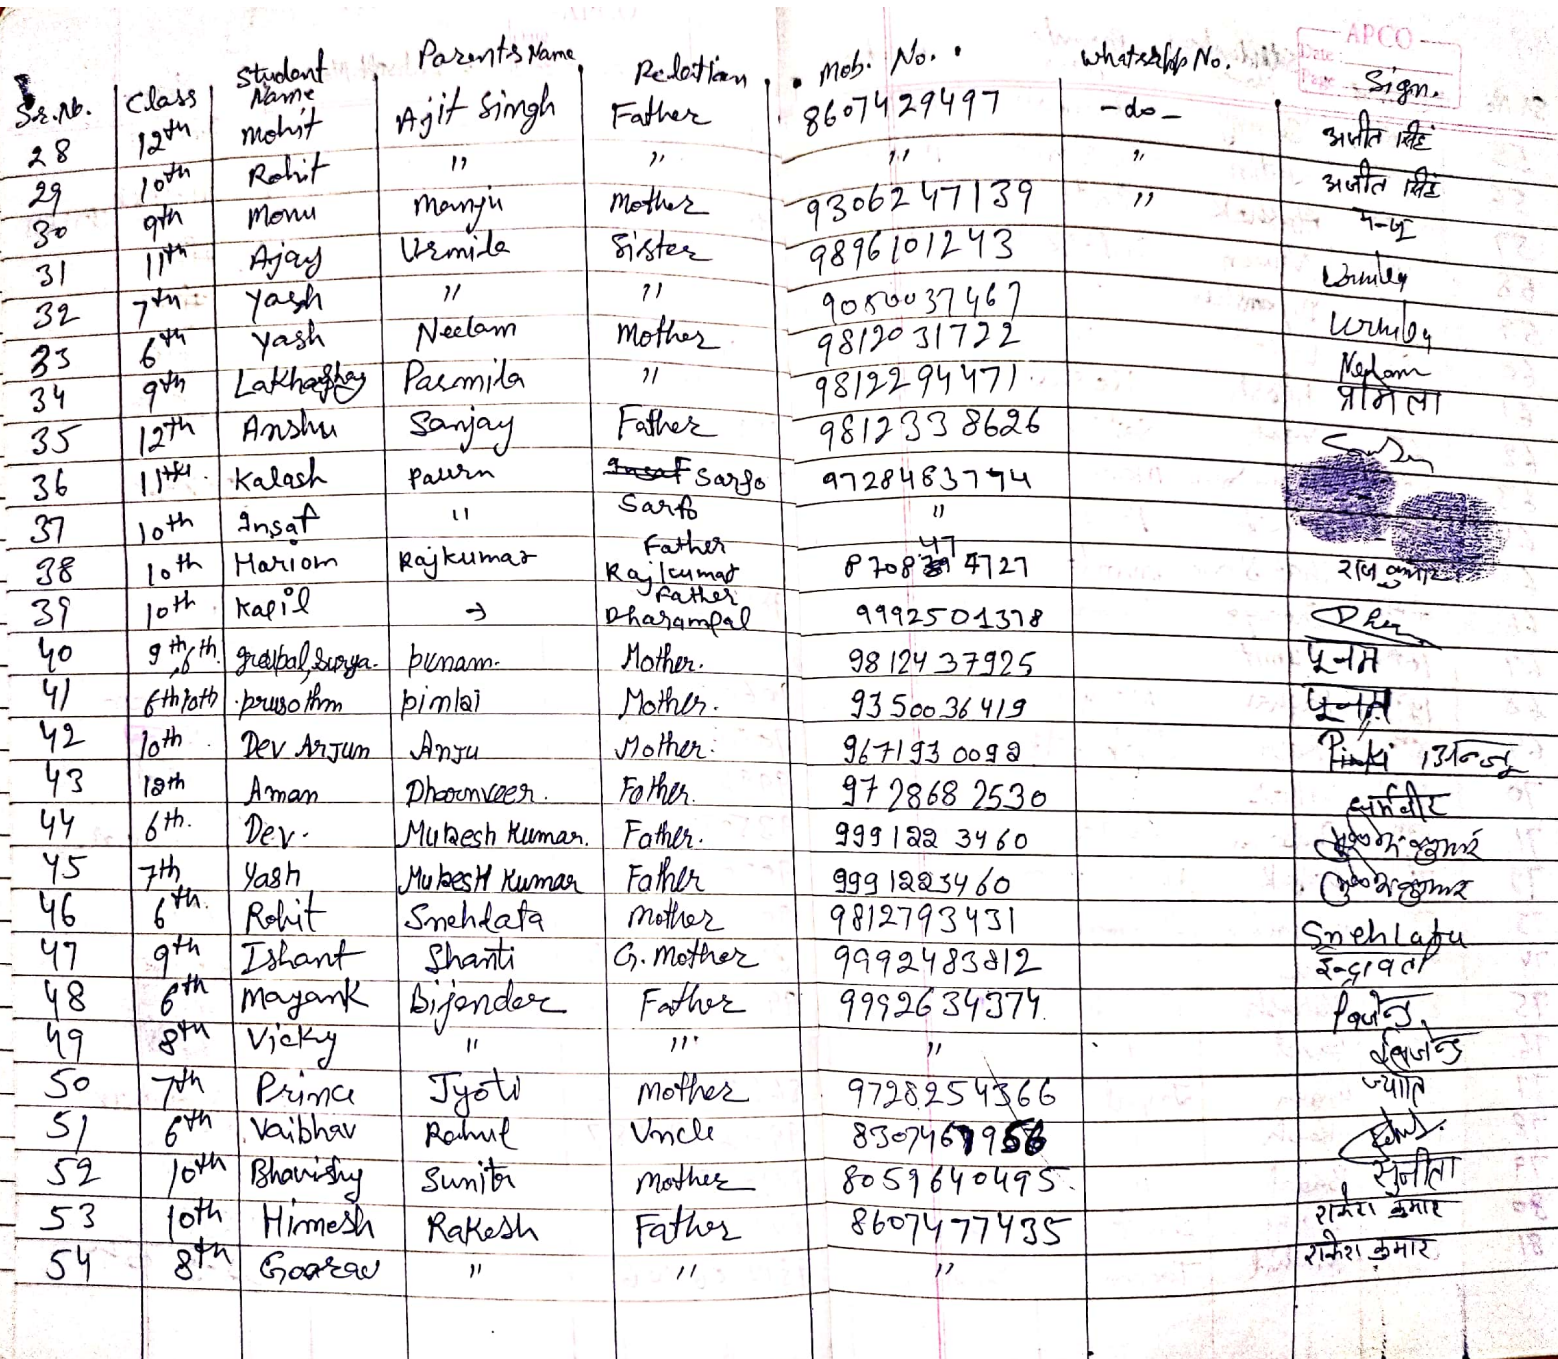 APCO
Date
Page
Sr.No. Class Student Name Parents Name Relation Mob. No. WhatsApp No. Sign.
28 12th Mohit Ajit Singh Father 8607429497 -do- अजीत सिंह
29 10th Rohit " " " " अजीत सिंह
30 9th Monu Manju Mother 9306247139 " मन्जू
31 11th Ajay Urmila Sister 9896101243
32 7th Yash " " 9050037467
33 6th Yash Neelam Mother 9812031722 Neelam
34 9th Parmila " 9812294471 प्रोमिला
35 12th Anshu Sanjay Father 9812338626
36 11th Kalash Pawn Sarfo 9728483774
37 10th Insaf " Sarfo "
38 10th Hariom Rajkumar Father Rajkumar राज कुमार
39 10th Kapil → Father Dharampal 9992501378
40 9th, 6th punam. Mother. 9812437925 पूनम
41 6th/10th prusothm pimlai Mother. 9350036419 पूनम
42 10th Dev Arjun Anju Mother. 9671930092 Pinki अन्जू
43 12th Aman Dharmveer. Father. 9728682530 धर्मवीर
44 6th. Dev. Mukesh Kumar. Father. 9991223460
45 7th Yash Mukesh Kumar Father 9991223460
46 6th. Rohit Snehlata Mother 9812793431 Snehlata
47 9th Ishant Shanti G. Mother 9992483812 इन्द्रावती
48 6th Mayank Bijender Father 9992634374.
49 8th Vicky " " "
50 7th Prince Jyoti Mother 9728254366 ज्योति
51 6th Vaibhav Rahul Uncle
52 10th Bhavishy Sunita Mother 8059640495. सुनीता
53 10th Himesh Rakesh Father 8607477435 राकेश कुमार
54 8th Goarav " " " राकेश कुमार